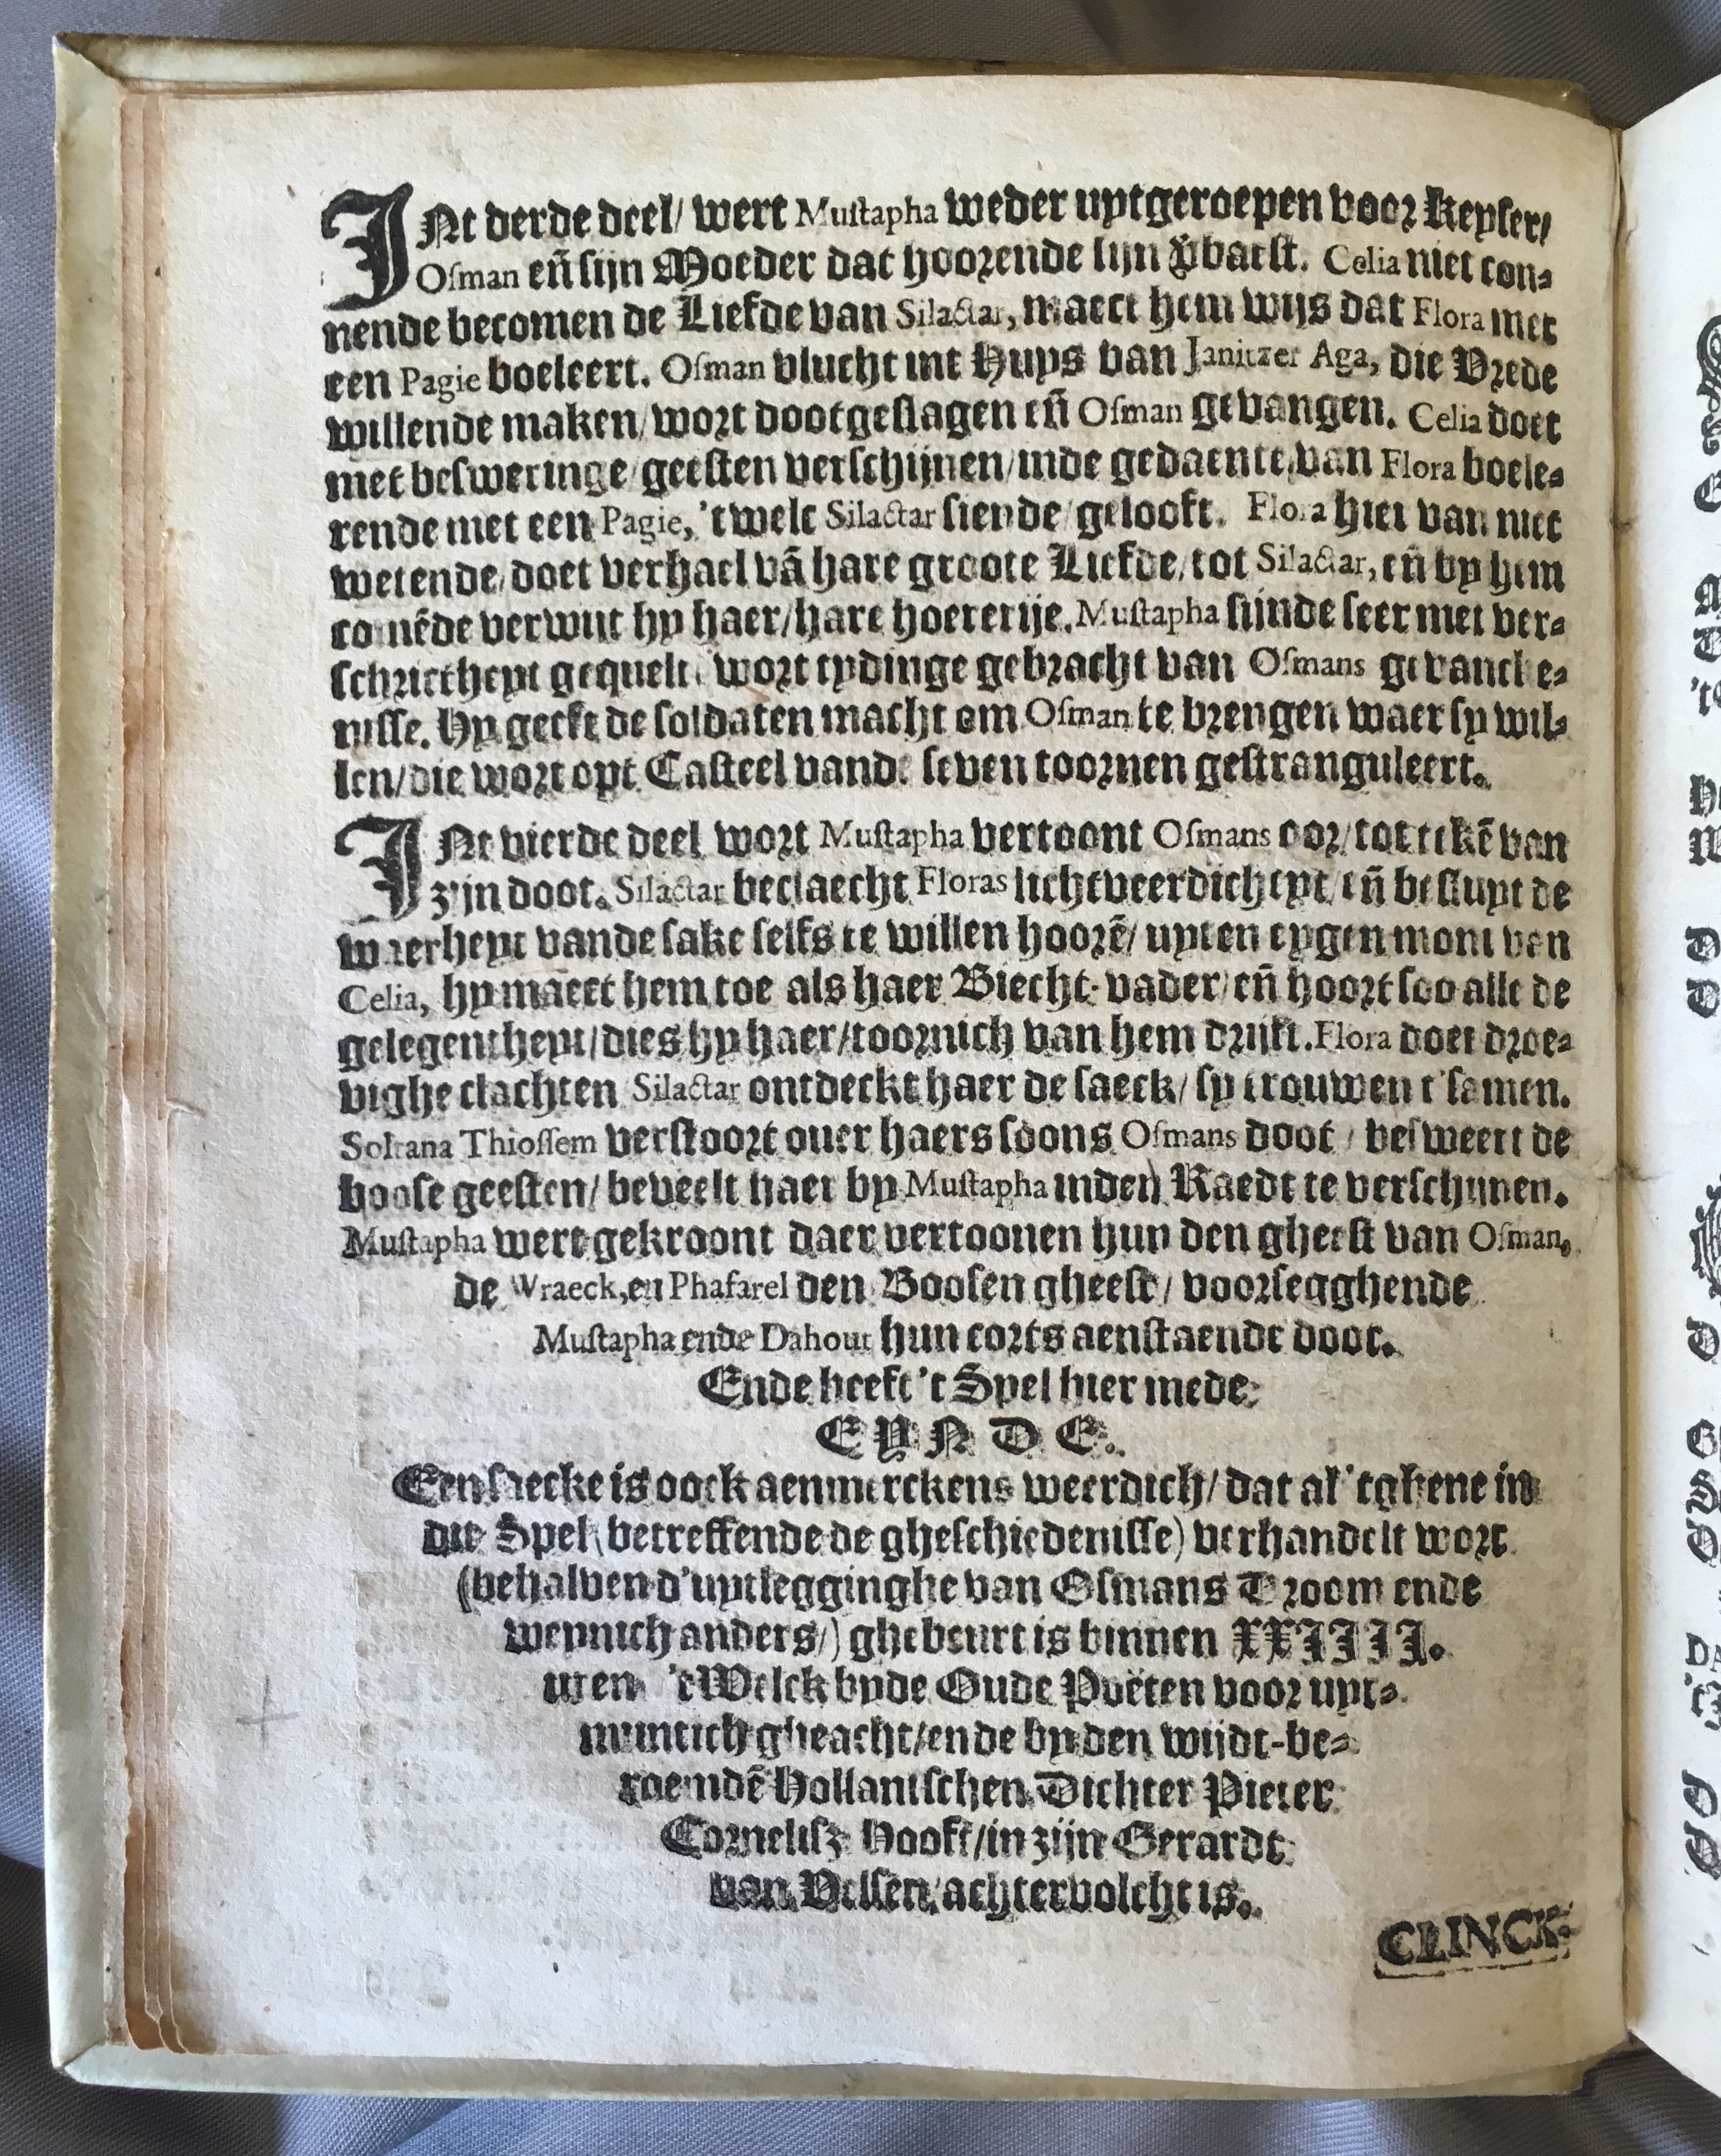 INt derde deel/ wert Mustapha weder uytgeroepen voor Keyser/
Osman eñ sijn Moeder dat hoorende sijn v̄baest. Celia niet con-
nende becomen de Liefde van Silactar, maect hem wijs dat Flora met
een Pagie boeleert. Osman vlucht int Huys van Janitzer Aga, die Vrede
willende maken/ wort dootgeslagen eñ Osman gevangen. Celia doet
met besweringe/ geesten verschijnen/ inde gedaente van Flora boele-
rende met een Pagie, 't welc Silactar siende/ gelooft. Flora hier van niet
wetende/ doet verhael vā hare groote Liefde/ tot Silactar, eñ by hem
comēde verwijt hy haer/ hare hoererije. Mustapha sijnde seer met ver-
schrictheyt gequelt/ wort tydinge gebracht van Osmans gevancke-
nisse. Hy geeft de soldaten macht om Osman te brengen waer sy wil-
len/ die wort opt Casteel vande seven toornen gestranguleert.
INt vierde deel wort Mustapha vertoont Osmans oor/ tot tekē van
zijn doot. Silactar beclaecht Floras lichtveerdicheyt/ eñ besluyt de
waerheyt vande sake selfs te willen hoorē/ uyten eygen mont van
Celia, hy maect hem toe als haer Biecht-vader/ eñ hoort soo alle de
gelegentheyt/ dies hy haer/ toornich van hem drijft. Flora doet droe-
vighe clachten Silactar ontdeckt haer de saeck/ sy trouwen t'samen.
Soltana Thiossem verstoort over haers soons Osmans doot/ besweert de
boose geesten/ beveelt haer by Mustapha inden Raedt te verschijnen.
Mustapha wert gekroont daer vertoonen hun den gheest van Osman,
de Wraeck, en Phafarel den Boosen gheest/ voorsegghende
Mustapha ende Dahout hun corts aenstaende doot.
Ende heeft 't Spel hier mede
EYNDE.
Een saecke is oock aenmerckens weerdich/ dat al 't ghene in
dit Spel (betreffende de gheschiedenisse) verhandelt wort
(behalven d'uytlegginghe van Osmans Droom ende
weynich anders/) ghebeurt is binnen XXIIII.
uren 't Welck byde Oude Poëten voor uyt-
nimtich gheacht/ ende by den wijdt-be-
roemdē Hollantschen Dichter Pieter
Cornelisz Hooft/ in zijn Gerardt
van Velsen/ achtervolcht is.
CLINCK-